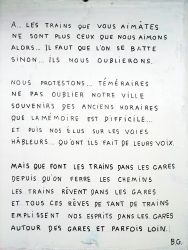 A... LES TRAINS QUE VOUS AIMÂTES
NE SONT PLUS CEUX QUE NOUS AIMONS
ALORS... IL FAUT QUE L'ON SE BATTE
SINON... ILS NOUS OUBLIERONS.
NOUS PROTESTONS... TÉMÉRAIRES
NE PAS OUBLIER NOTRE VILLE
SOUVENIRS DES ANCIENS HORAIRES
QUE LA MÉMOIRE EST DIFFICILE...
ET PUIS NOS ÉLUS SUR LES VOIES
HÂBLEURS... QU'ONT ILS FAIT DE LEURS VOIX.
MAIS QUE FONT LES TRAINS DANS LES GARES
DEPUIS QU'ON FERRE LES CHEMINS
LES TRAINS RÊVENT DANS LES GARES
ET TOUS CES RÊVES DE TANT DE TRAINS
EMPLISSENT NOS ESPRITS DANS LES GARES
AUTOUR DES GARES ET PARFOIS LOIN.
B.G.